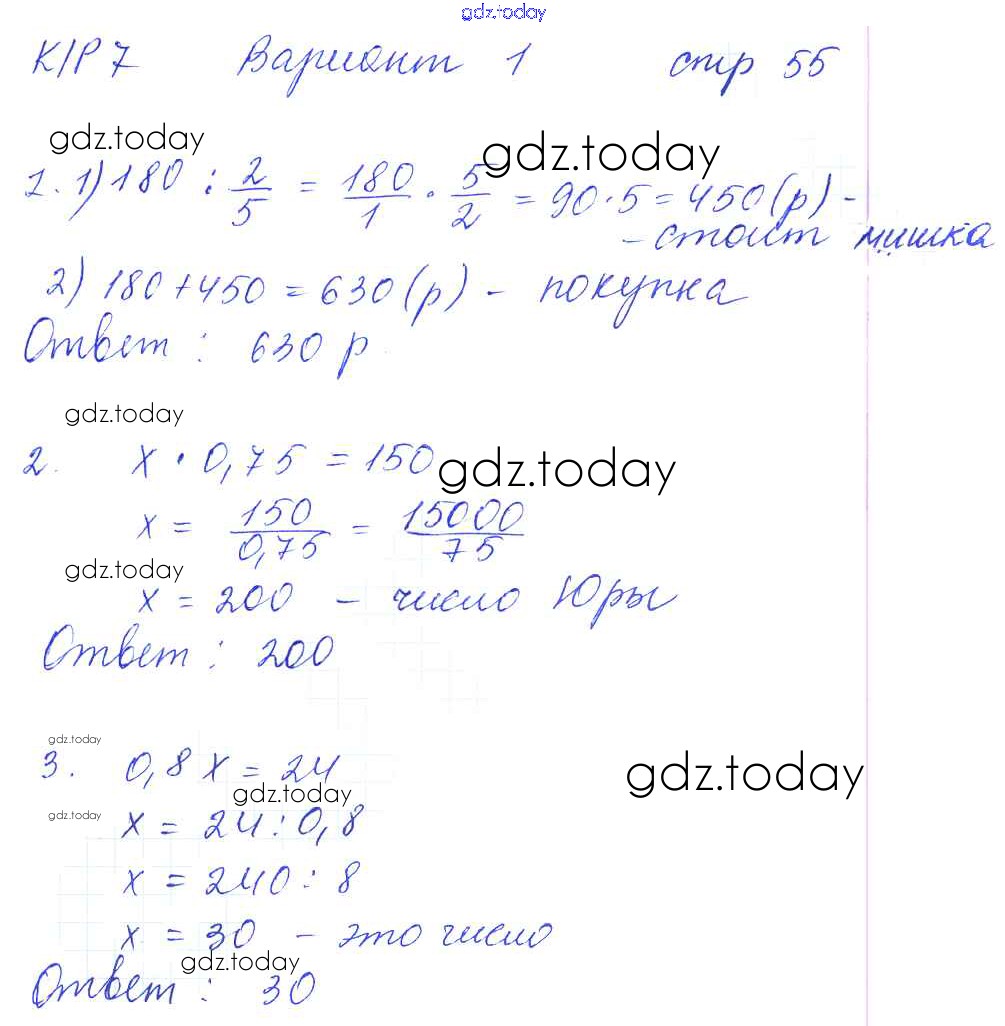 gdz.today
К/Р 7 Вариант 1 стр 55
gdz.today
gdz.today
1. 1) 180 : 2/5 = 180/1 · 5/2 = 90·5 = 450 (р) -
- стоит мишка
2) 180 + 450 = 630 (р) - покупка
Ответ : 630 р
gdz.today
2. х · 0,75 = 150
gdz.today
х = 150/0,75 = 15000/75
gdz.today
х = 200 - число Юры
Ответ : 200
gdz.today
3. 0,8 х = 24
gdz.today
gdz.today
gdz.today
х = 24 : 0,8
х = 240 : 8
х = 30 - это число
gdz.today
Ответ : 30